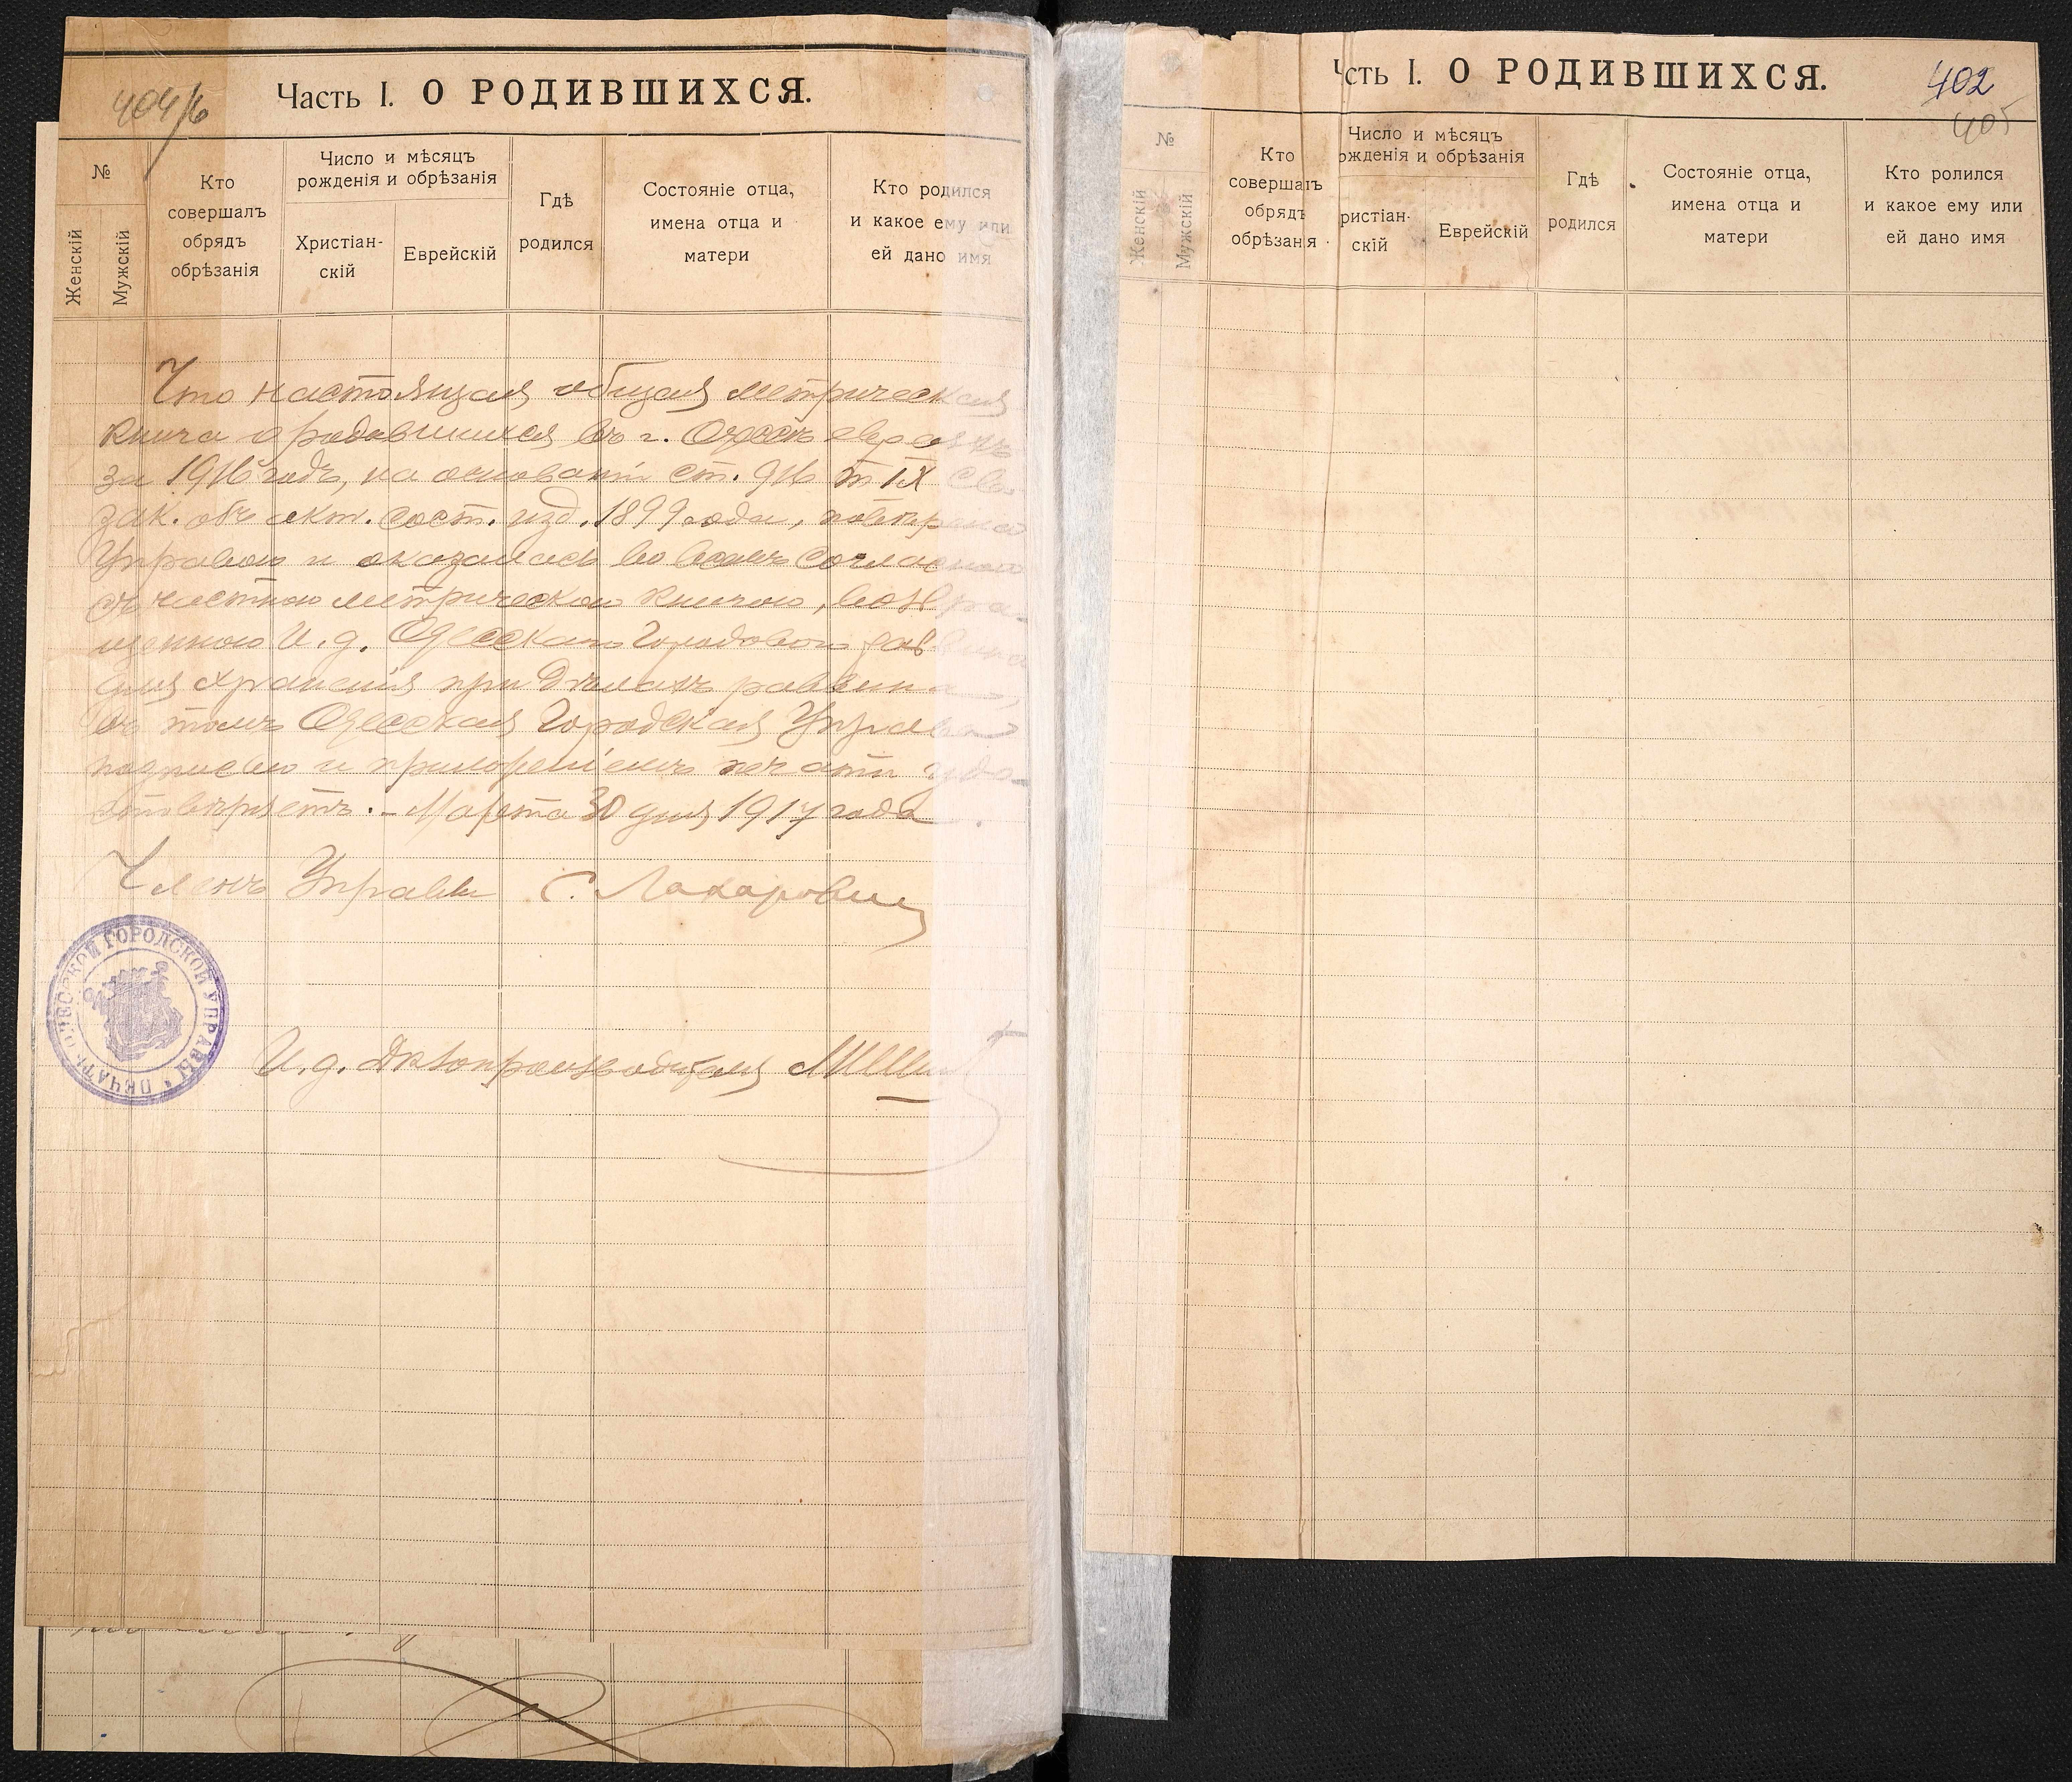 404/б
Часть I. О РОДИВШИХСЯ.
№
Женскій
Мужскій
Кто
совершалъ
обрядъ
обрѣзанія
Число и мѣсяцъ
рожденія и обрѣзанія
Христіан-
скій
Еврейскій
Гдѣ
родился
Состояніе отца,
имена отца и
матери
Кто родился
и какое ему или
ей дано имя
Что настоящая общая метрическая
книга о родившихся въ г. Одессѣ евреяхъ
за 1916 годъ, на основаніи ст. 916 т IX Св.
зак. объ акт. сост. изд. 1899 года, повѣрена
Управою и оказалась во всемъ согласною
съ частною метрическою книгою, возвра-
щенною И. д. Одесскаго Городового раввина
для храненія при дѣлахъ раввина,
въ томъ Одесская Городская Управа
подписью и приложеніемъ печати удо-
стовѣряетъ. – Марта 30 дня 1917 года.
Членъ Управы С.
ПЕЧАТЬ ОДЕССКОЙ ГОРОДСКОЙ УПРАВЫ
И. д. Дѣлопроизводителя
Ч сть I. О РОДИВШИХСЯ.
402
405
№
Женскій
Мужскій
Кто
совершалъ
обрядъ
обрѣзанія
Число и мѣсяцъ
ожденія и обрѣзанія
ристіан-
скій
Еврейскій
Гдѣ
родился
Состояніе отца,
имена отца и
матери
Кто ролился
и какое ему или
ей дано имя